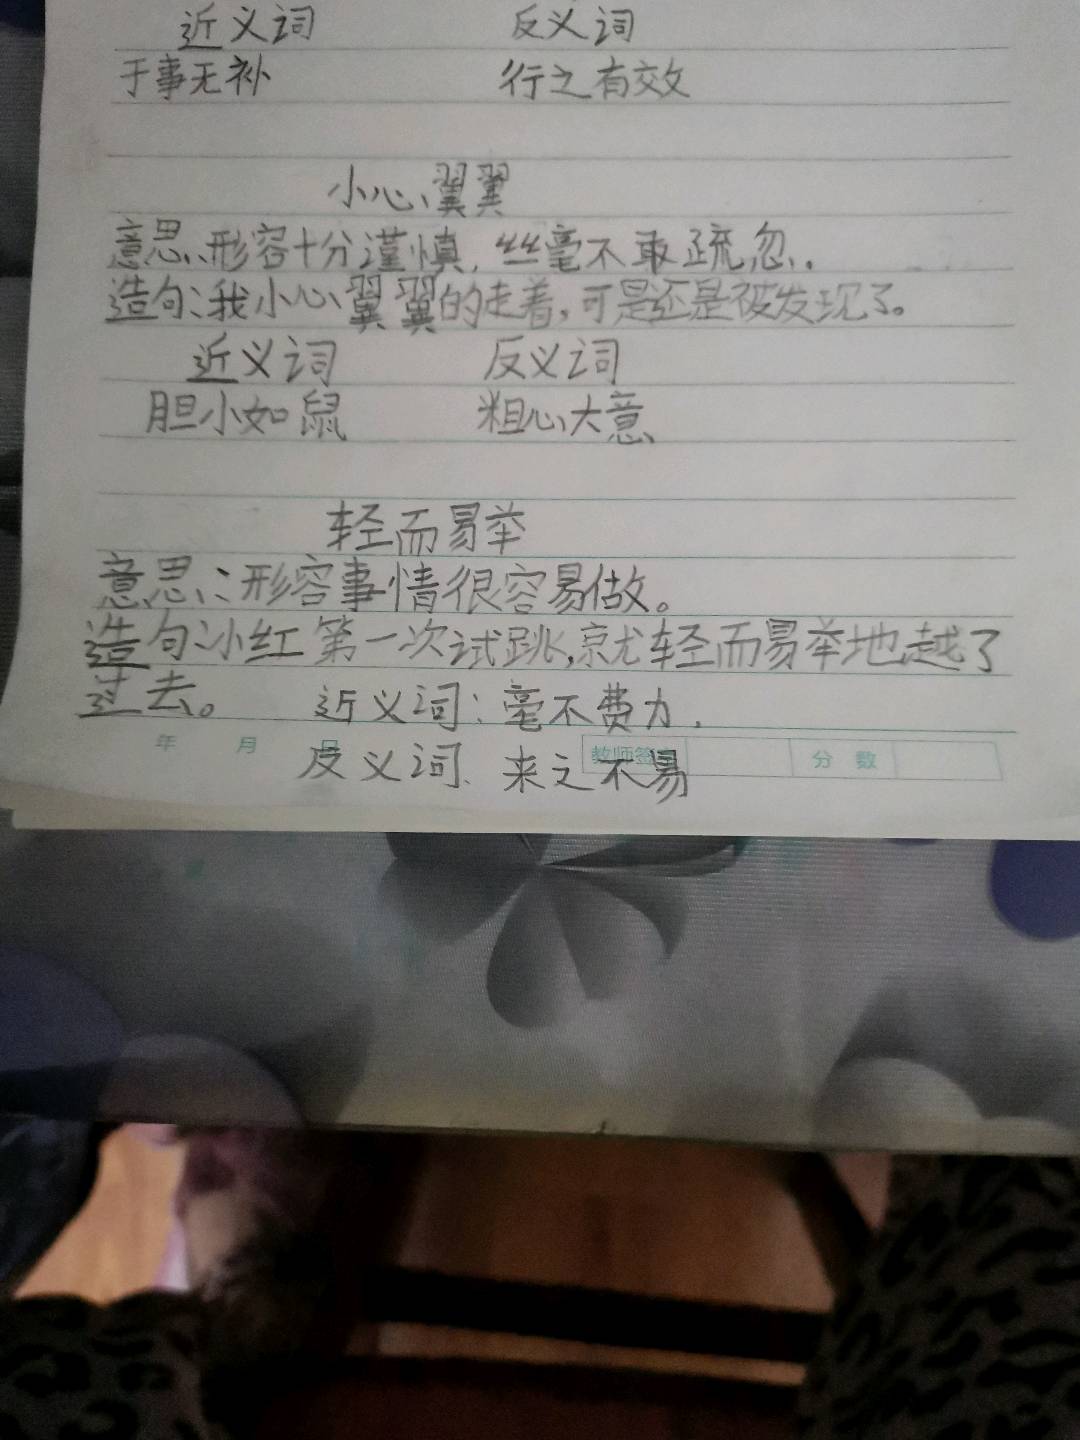 近义词 反义词
于事无补 行之有效
小心翼翼
意思:形容十分谨慎,丝毫不敢疏忽.
造句:我小心翼翼的走着,可是还是被发现了。
近义词 反义词
胆小如鼠 粗心大意
轻而易举
意思:形容事情很容易做。
造句:小红第一次试跳,就轻而易举地越了
过去。 近义词:毫不费力.
年 月 日 教师签 分数
反义词. 来之不易